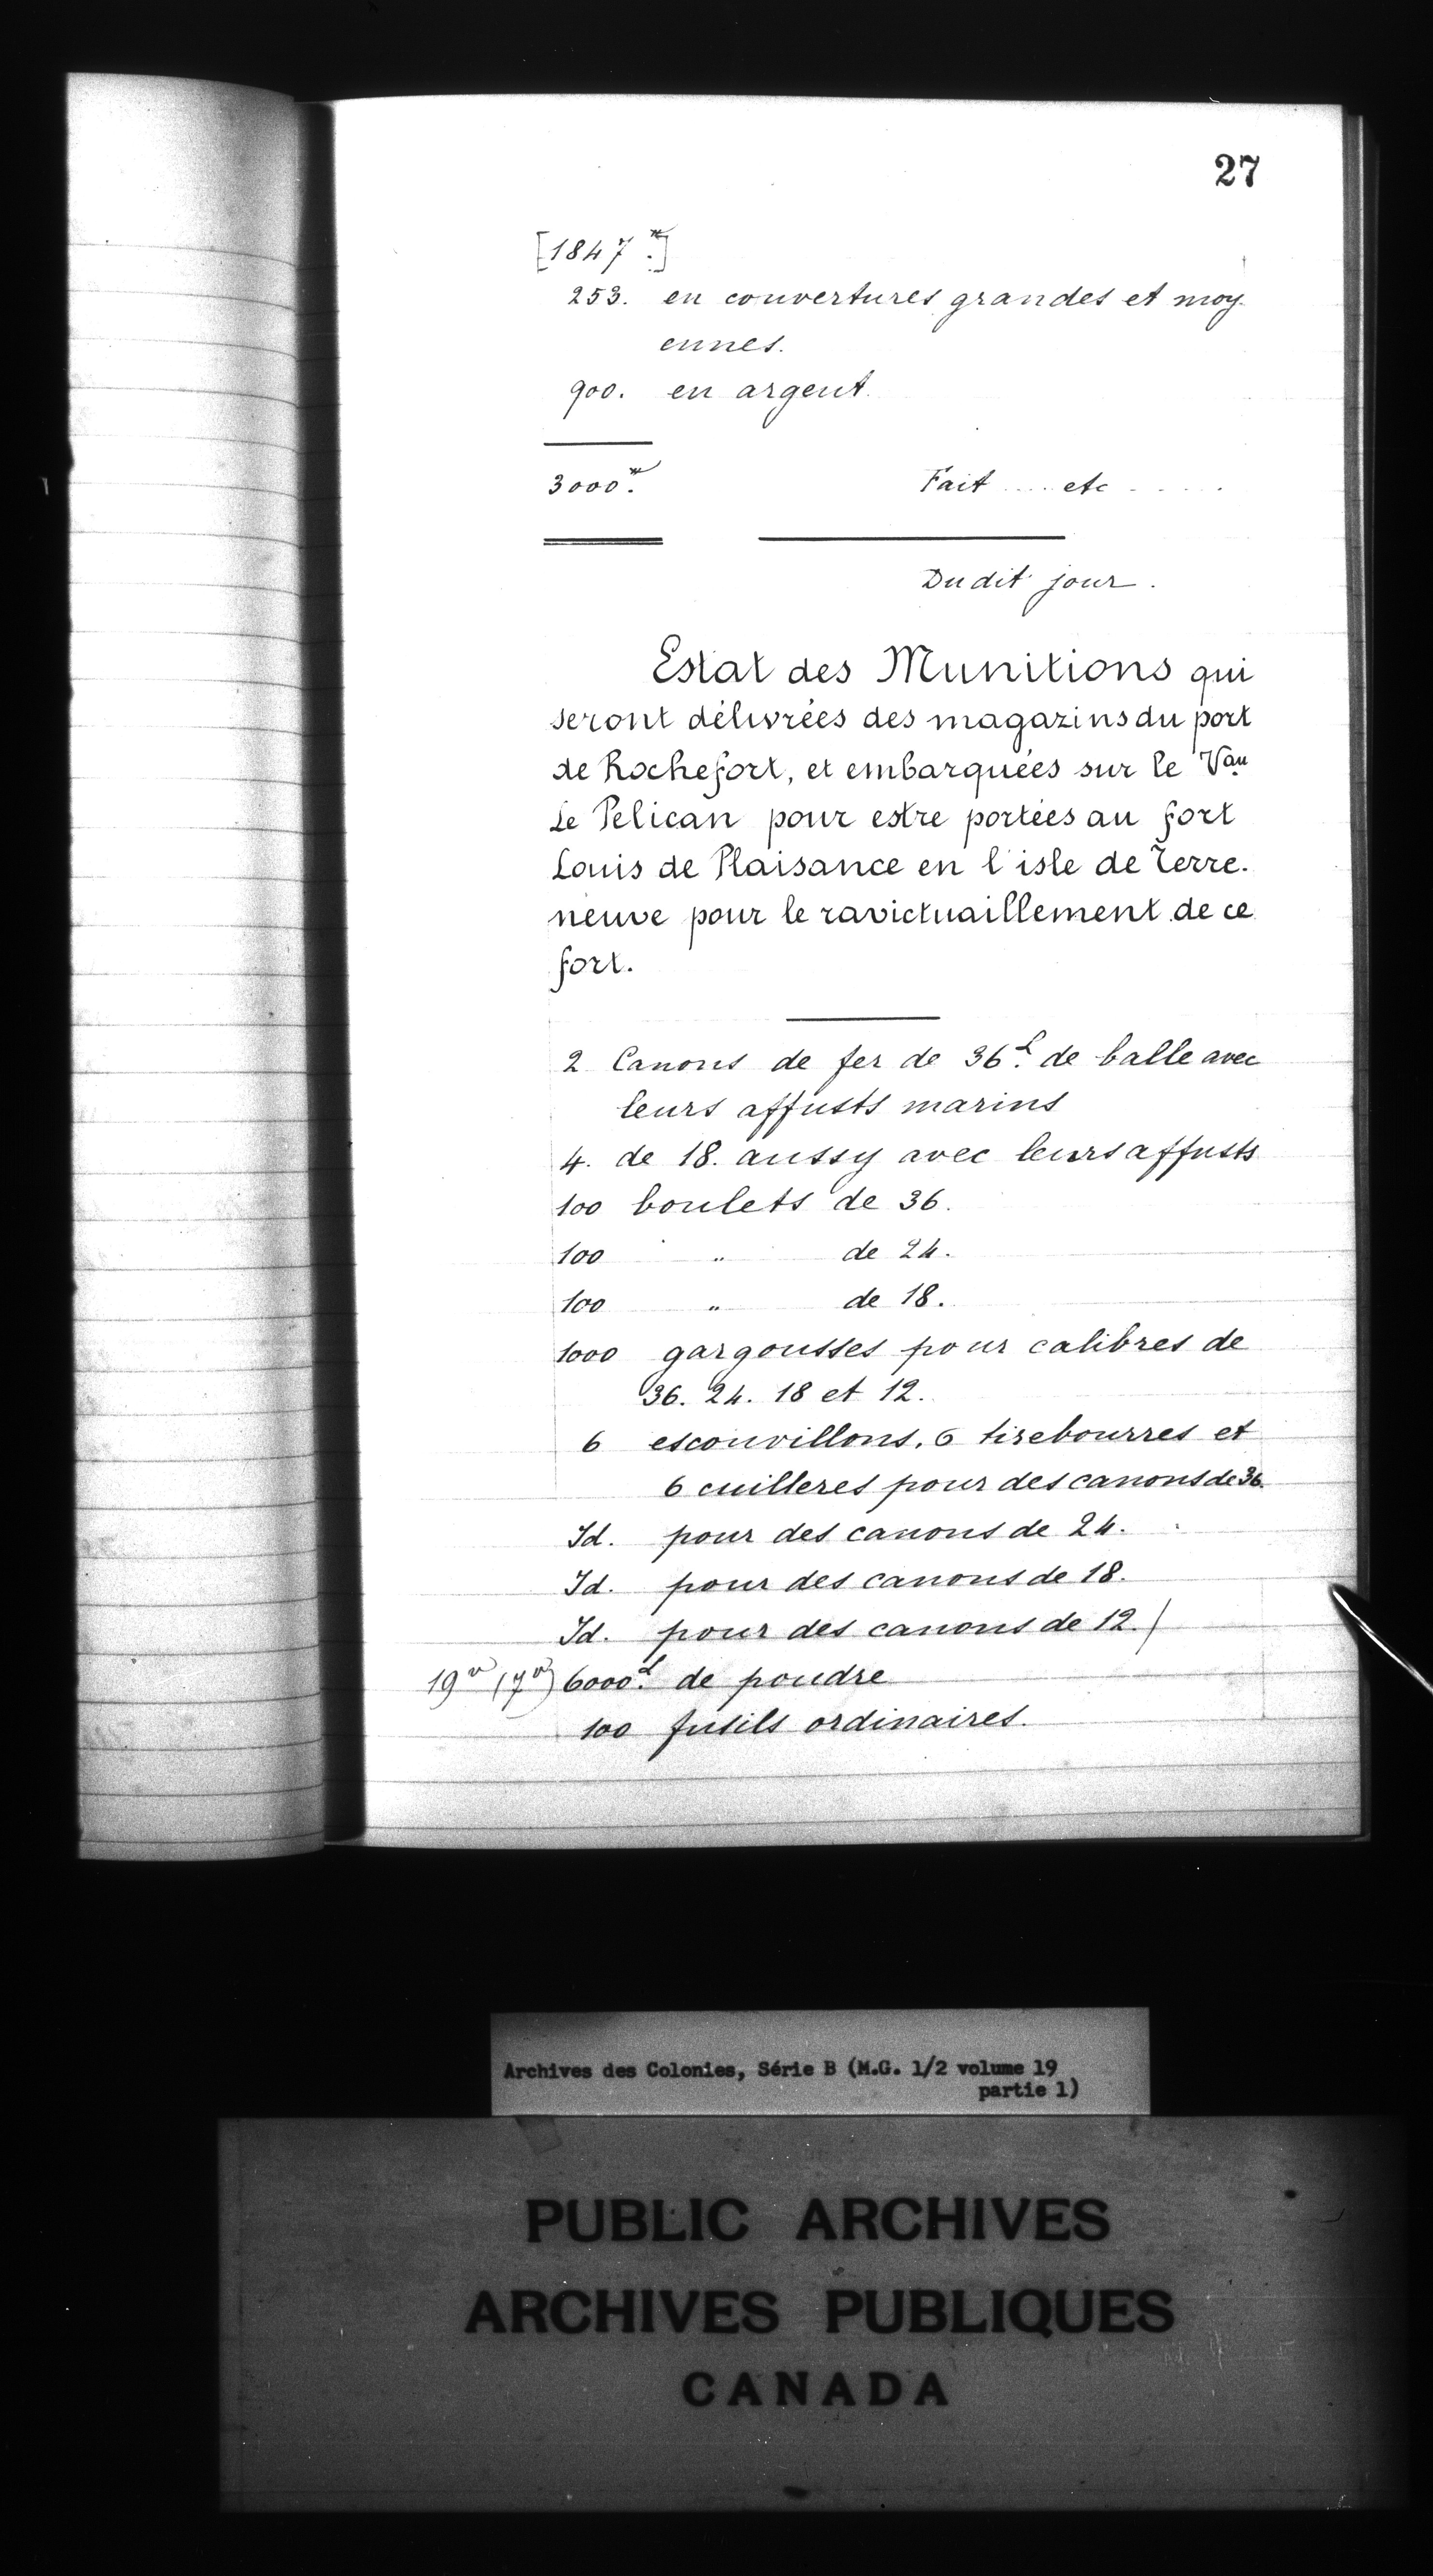 27
[1847.tt]
253. en couvertures grandes et moy
ennes.
900. en argent.
3000.tt Fait .... etc .....
Du dit jour.
Estat des Munitions qui
seront délivrées des magazins du port
de Rochefort, et embarquées sur le Vau
Le Pelican pour estre portées au fort
Louis de Plaisance en l'isle de Terre.
neuve pour le ravictuaillement de ce
fort.
2 Canons de fer de 36.L de balle avec
leurs affusts marins
4. de 18. aussy avec leurs affusts
100 boulets de 36.
100 " de 24.
100 " de 18.
1000 gargousses pour calibres de
36. 24. 18 et 12.
6 escouvillons, 6 tirebourres et
6 cuilleres pour des canons de 36.
Id. pour des canons de 24.
Id. pour des canons de 18.
Id. pour des canons de 12./
19 vo (7 vo) 6000.L de poudre
100 fusils ordinaires.
Archives des Colonies, Série B (M.G. 1/2 volume 19
partie 1)
PUBLIC ARCHIVES
ARCHIVES PUBLIQUES
CANADA